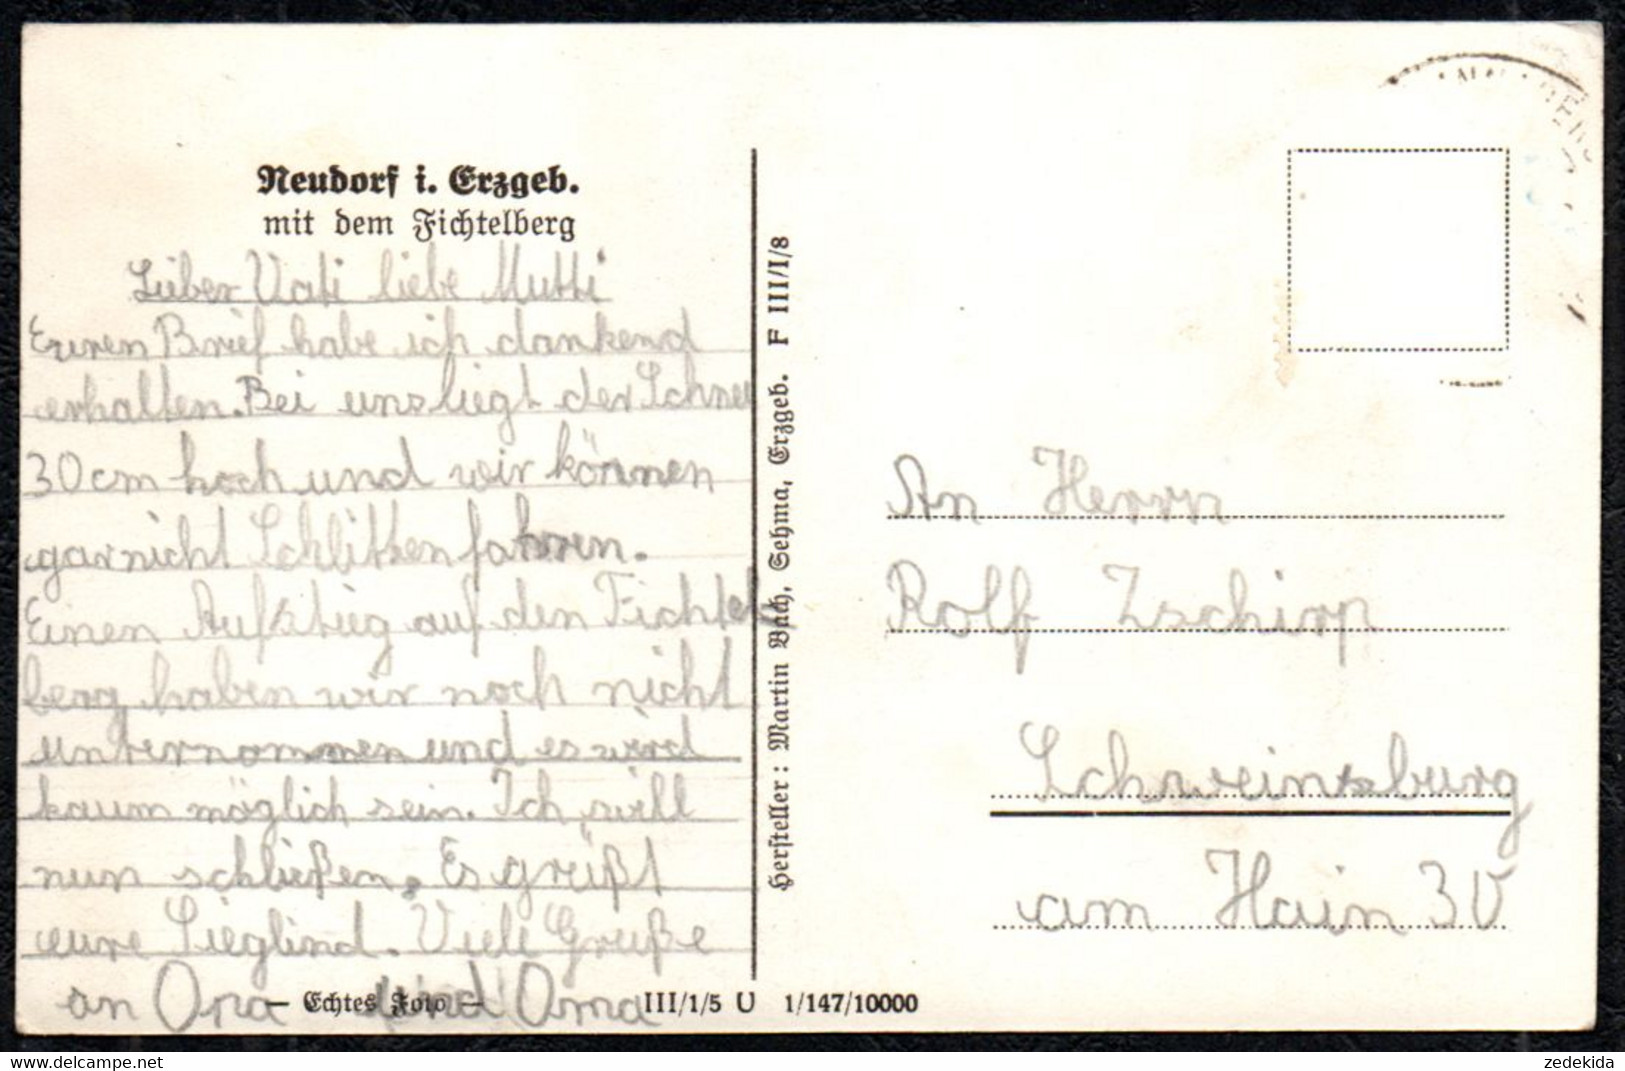 Neudorf i. Erzgeb.
mit dem Fichtelberg
Lieber Vati liebe Mutti
Euren Brief habe ich dankend
erhalten. Bei uns liegt der Schnee
30cm hoch und wir können
garnicht Schlitten fahren.
Einen Aufstieg auf den Fichtel
berg haben wir noch nicht
unternommen und es wird
kaum möglich sein. Ich will
nun schließen. Es grüßt
eure Sieglind. Viele Grüße
an Opa und Oma
— Echtes Foto —
III/1/5 U 1/147/10000
Hersteller: Martin Bach, Sehma, Erzgeb. F III/I/8
An Herrn
Rolf Zschirp
Schweinsburg
am Hain 30
www.delcampe.net
zedekida